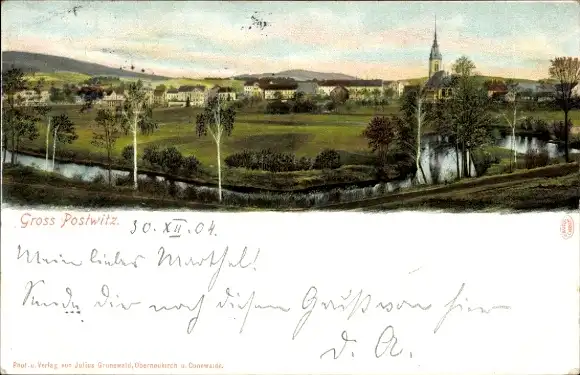 Gross Postwitz. 30.XII.04.
Mein liebes Marthel!
Sende Dir noch diesen Gruß von hier
D. A.
Phot. u. Verlag von Julius Grunewald, Oberneukirch u. Cunewalde.